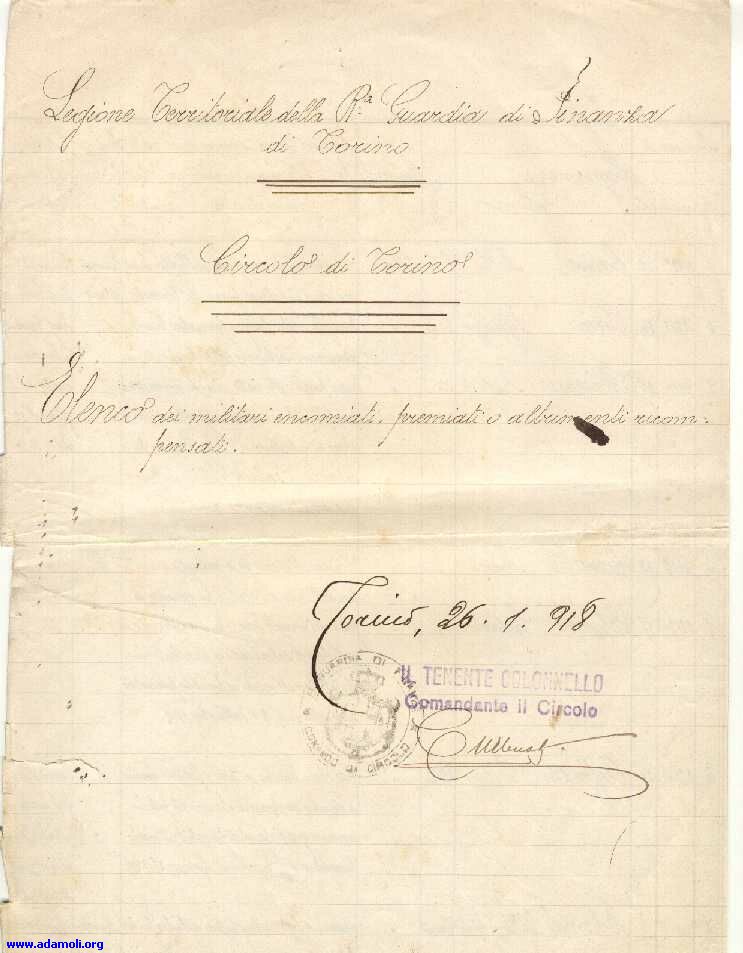 Legione Territoriale della Rª Guardia di Finanza
di Torino
Circolo di Torino
Elenco dei militari encomiati, premiati o altrimenti ricom-
pensati.
Torino, 26. 1. 918
IL TENENTE COLONNELLO
Comandante il Circolo
GUARDIA DI FINANZA
COMANDO DI CIRCOLO
www.adamoli.org